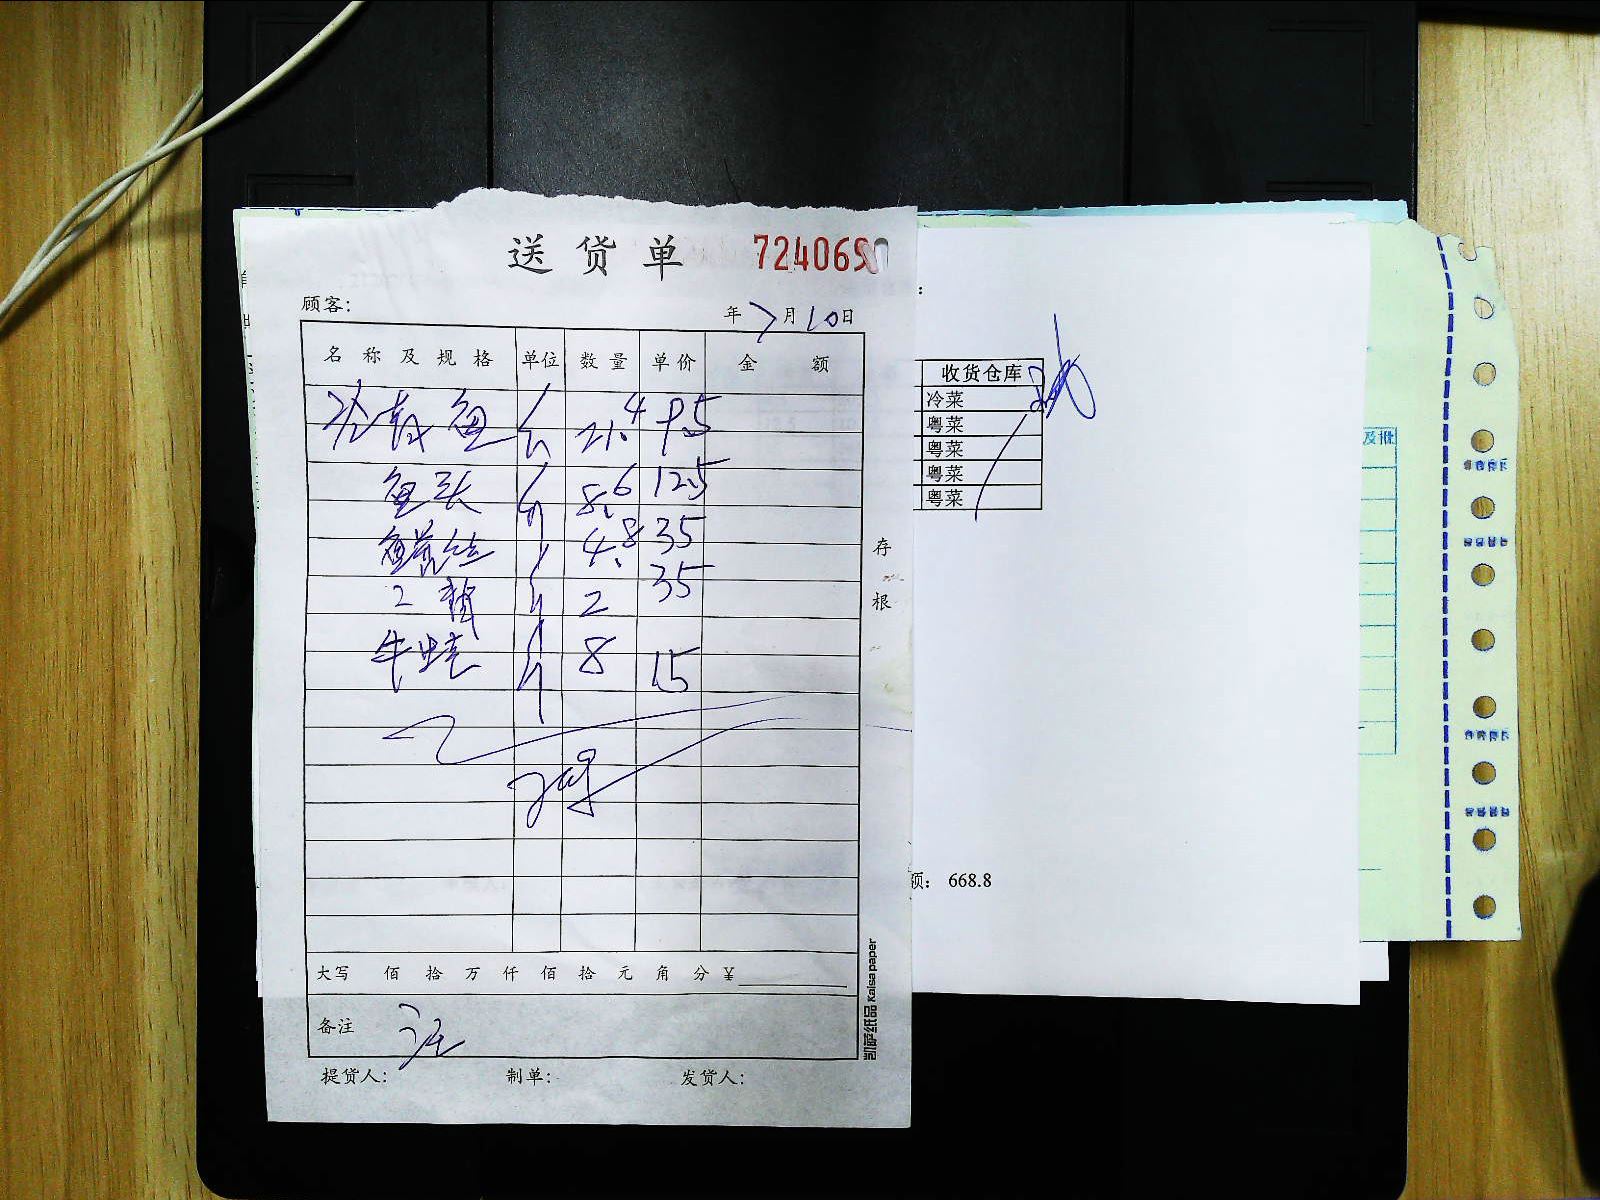 送货单 7240690
顾客：
年 7月10日
名称及规格 单位 数量 单价 金额
鱼 斤 21.4 9.5
鱼头 斤 8.6 12.5
鱼 丝 斤 4.8 35
斤 2 35
牛蛙 斤 8 15
存根
大写 佰 拾 万 仟 佰 拾 元 角 分 ¥
备注
凯萨纸品 Kaisa paper
提货人： 制单： 发货人：
收货仓库
冷菜
粤菜
粤菜
粤菜
粤菜
额： 668.8
及批